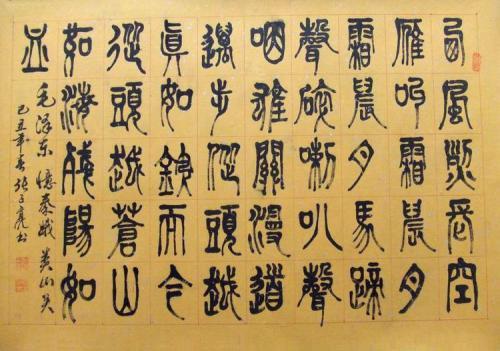 西風烈長空
雁叫霜晨月
霜晨月馬蹄
聲碎喇叭聲
咽雄關漫道
邁步從頭越
真如鐵而今
從頭越蒼山
如海殘陽如
血
毛澤东憶秦娥娄山关
己丑年春張子亮书